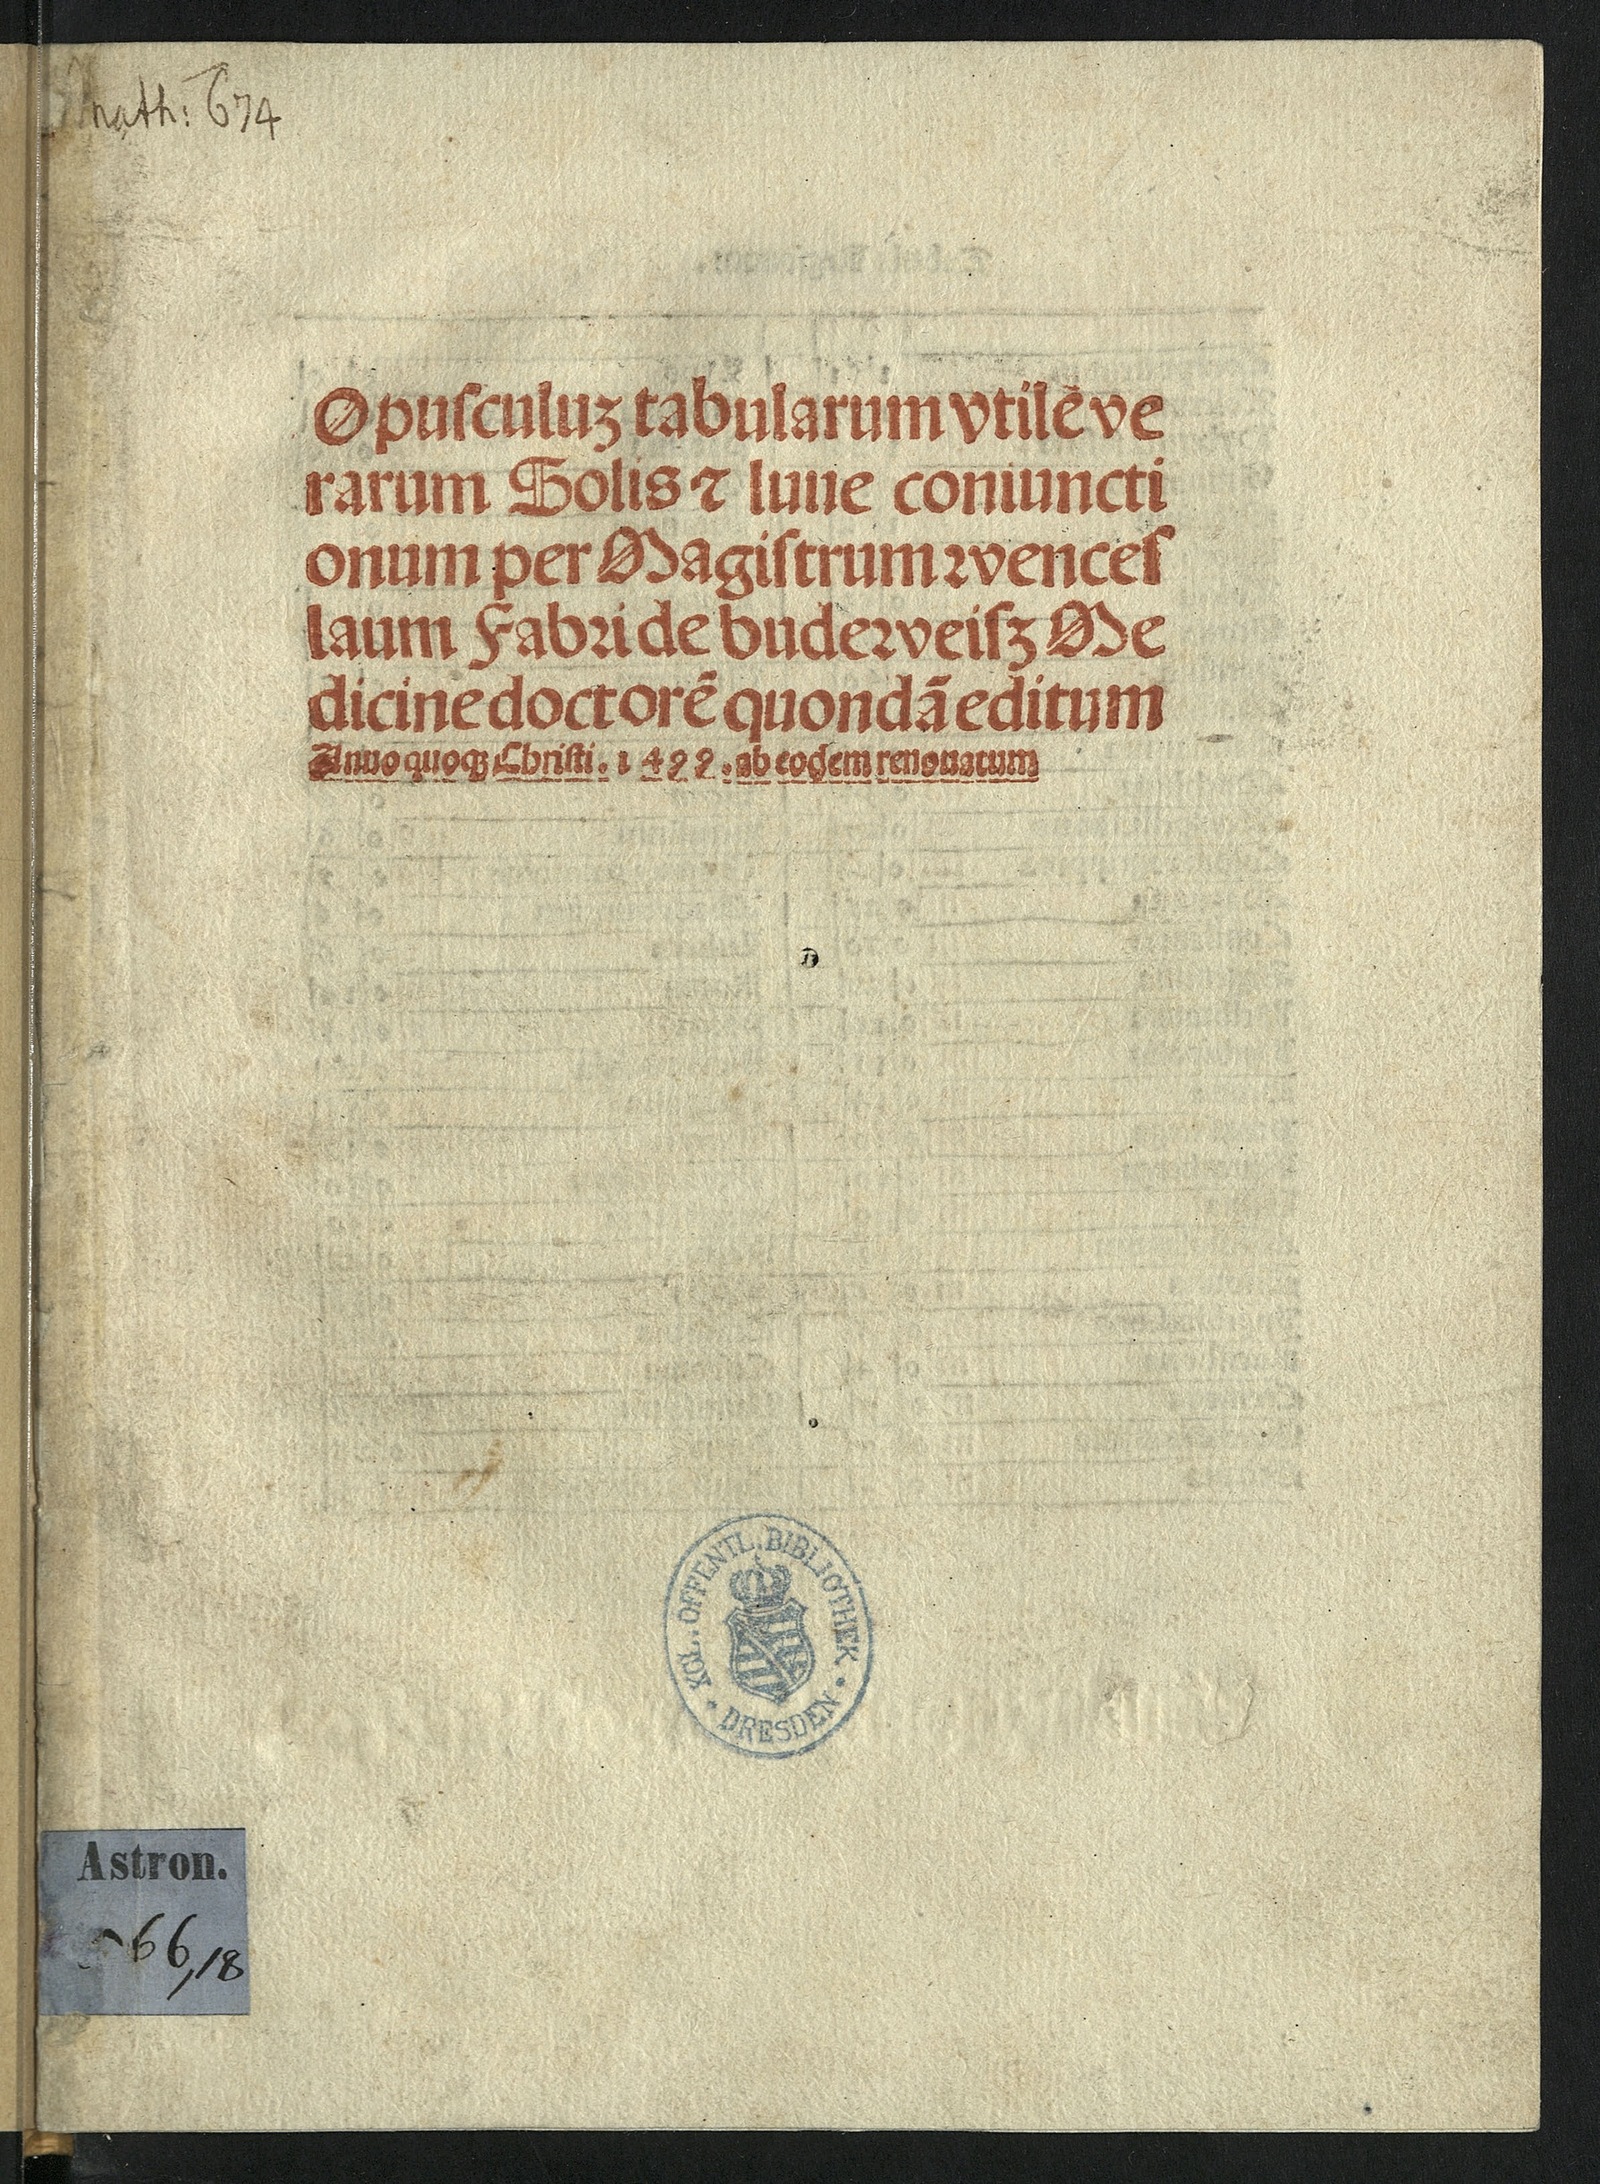 math: 674
Opuſculuꝫ tabularum vtilē ve
rarum Solis ⁊ lune coniuncti
onum per Magiſtrum wenceſ
laum Fabri de buderweiſʒ Me
dicine doctorē quondā editum
Anno quoqꝫ Chriſti. 1499. ab eodem renouatum
KGL. OFFENTL. BIBLIOTHEK
DRESDEN
Astron.
66,18